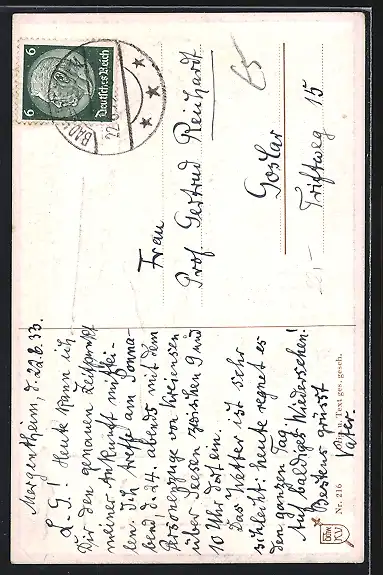 Mergentheim, d. 22.6.33.
L. G.! Heute kann ich
Dir den genauen Zeitpunkt
meiner Ankunft mittei-
len. Ich treffe am Sonna-
bend, d. 24. abends mit dem
Personenzuge von Kreiensen
über Seesen zwischen 9 und
10 Uhr dort ein.
Das Wetter ist sehr
schlecht: heute regnet es
den ganzen Tag.
Auf baldiges Wiedersehen!
Bestens grüsst
Vater.
Frau
Prof. Gertrud Reinhardt
Goslar
Triftweg 15
Deutsches Reich
6
6
BAD
22.6
Nr. 216
u. Text ges. gesch.